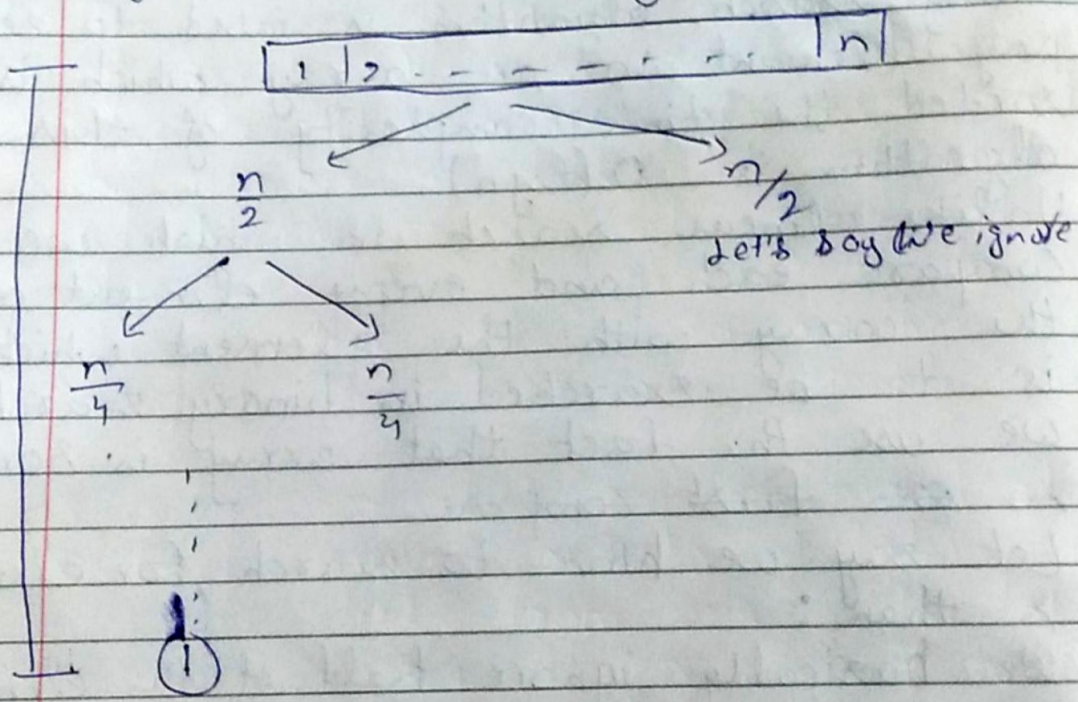 1 2 . . - - = = - . . n
n/2 n/2
Let's say we ignore
n/4 n/4
1